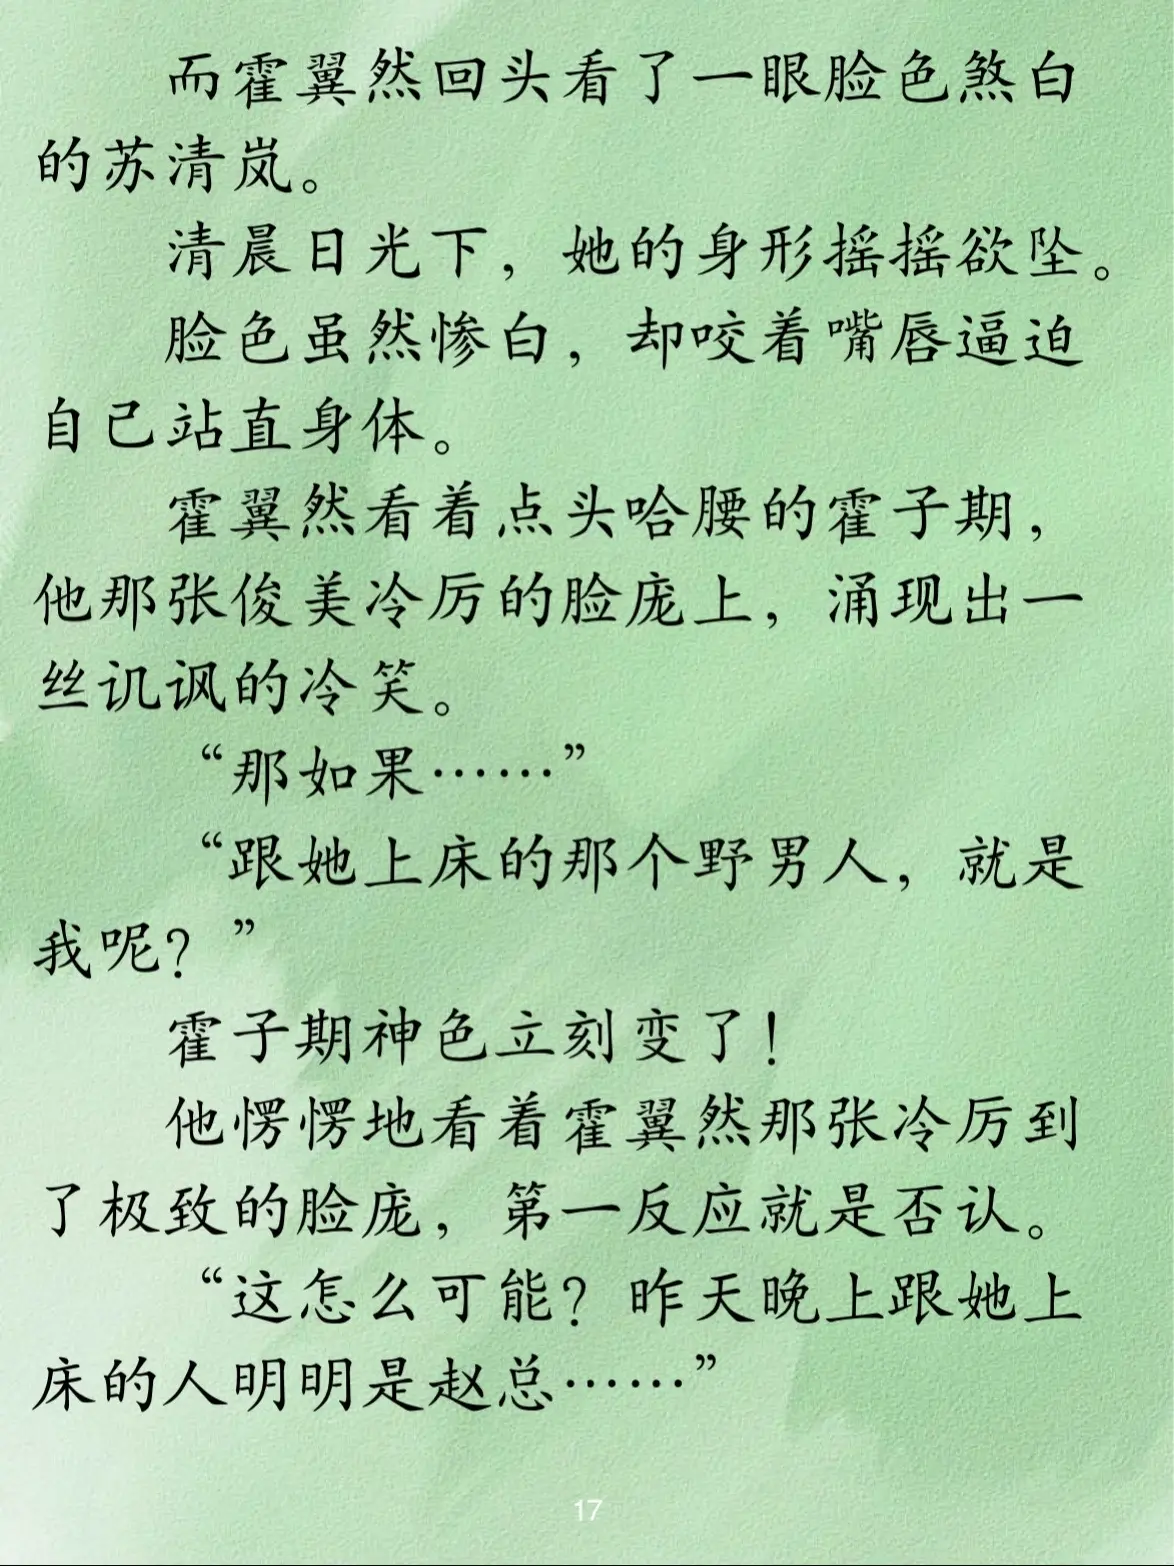 而霍翼然回头看了一眼脸色煞白
的苏清岚。
清晨日光下，她的身形摇摇欲坠。
脸色虽然惨白，却咬着嘴唇逼迫
自己站直身体。
霍翼然看着点头哈腰的霍子期，
他那张俊美冷厉的脸庞上，涌现出一
丝讥讽的冷笑。
“那如果……”
“跟她上床的那个野男人，就是
我呢？”
霍子期神色立刻变了！
他愣愣地看着霍翼然那张冷厉到
了极致的脸庞，第一反应就是否认。
“这怎么可能？昨天晚上跟她上
床的人明明是赵总……”
17